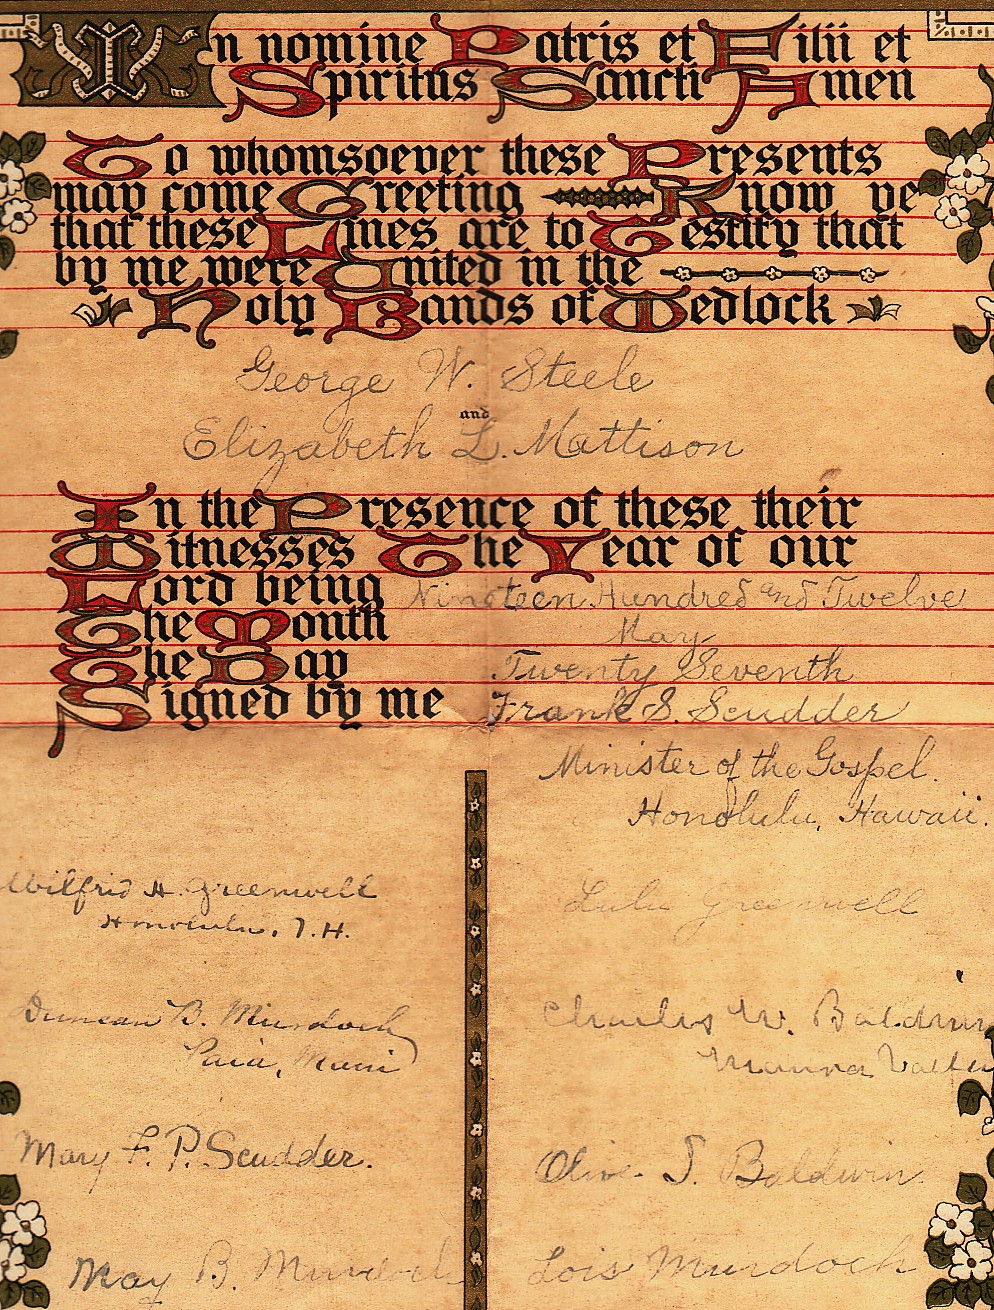 In nomine Patris et Filii et
Spiritus Sancti Amen
To whomsoever these Presents
may come Greeting Know ye
that these Lines are to Testify that
by me were United in the
Holy Bands of Wedlock
George W. Steele
and
Elizabeth L. Mattison
In the Presence of these their
Witnesses The Year of our
Lord being Nineteen Hundred and Twelve
The Month May
The Day Twenty Seventh
Signed by me Frank S. Scudder
Minister of the Gospel.
Honolulu, Hawaii.
Wilfrid H. Greenwell
Honolulu, T.H.
Lulu Greenwell
Duncan B. Murdoch
Paia, Maui
Charles W. Baldwin
Manoa Valley
Mary F. P. Scudder.
Olive S. Baldwin
May B. Murdoch
Lois Murdoch